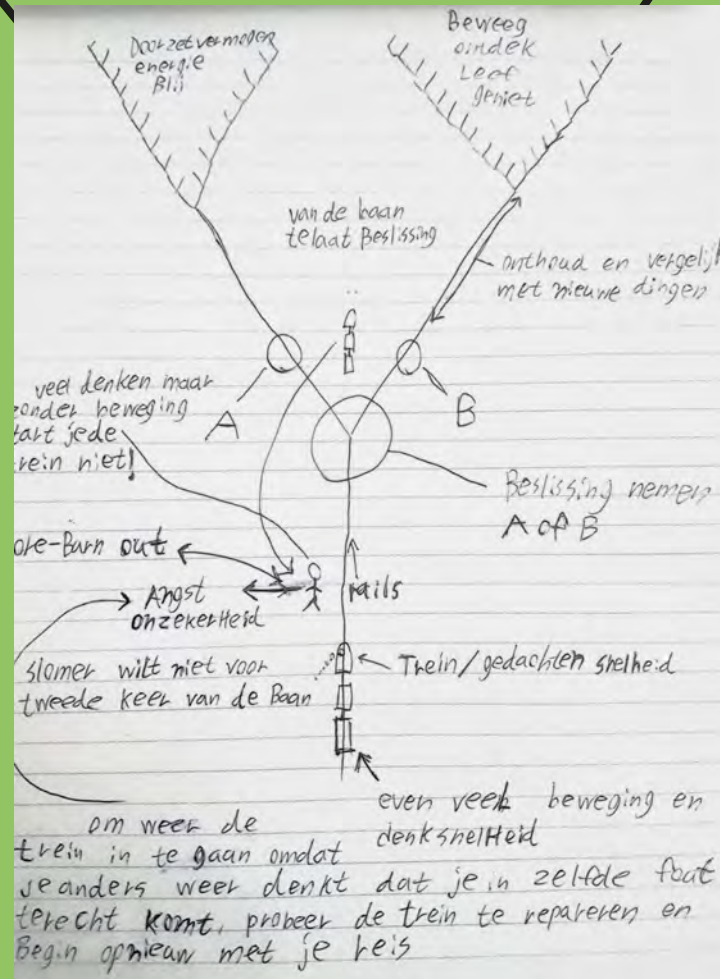 Doorzetvermogen
energie
Blij
Beweeg
ontdek
Leef
geniet
van de baan
telaat Beslissing
onthoud en vergelijk
met nieuwe dingen
A
B
veel denken maar
zonder beweging
tart jede
rein niet!
Beslissing nemen
A of B
ore-Burn out
Angst
onzekerHeid
rails
Trein/gedachten snelheid
slomer wilt niet voor
tweede keer van de Baan
even veel beweging en
denksnelHeid
om weer de
trein in te gaan omdat
je anders weer denkt dat je in zelfde fout
terecht komt, probeer de trein te repareren en
Begin opnieuw met je reis